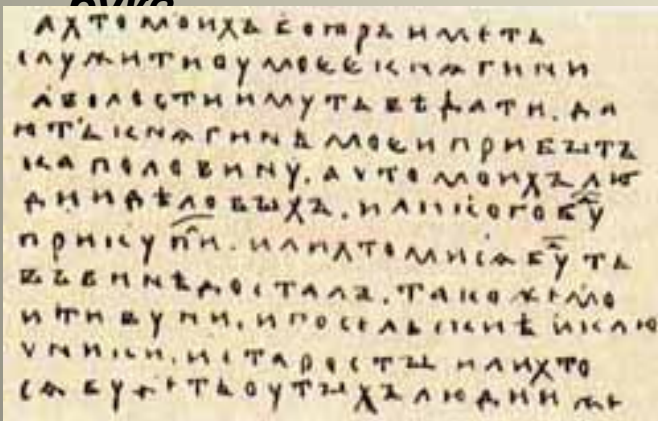 а хто моихъ боꙗръ иметь
служити оу моее кнѧгини
а волости имуть вѣдати. да
ють кнѧгинѣ моеи прибытъ
ка половину. а что моихъ лю
дии дѣловыхъ. или кого бу
прикупи. или хто ми сѧ буть
въ винѣ досталъ. такоже мо
и тивуни. и посельскиѣ и клю
чники. и старосты или хто
сѧ будеть оу тыхъ людии же